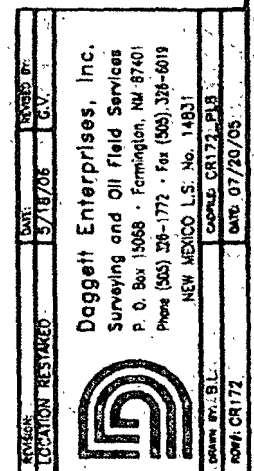 REVISION: DATE: REVISED BY:
LOCATION RESTAKED 5/18/06 G.V.
Daggett Enterprises, Inc.
Surveying and Oil Field Services
P. O. Box 15068 · Farmington, NM 87401
Phone (505) 326-1772 · Fax (505) 326-6019
NEW MEXICO L.S. No. 14831
DRAWN BY: B.L. CADFILE: CR172_PL8
ROW#: CR172 DATE: 07/20/05